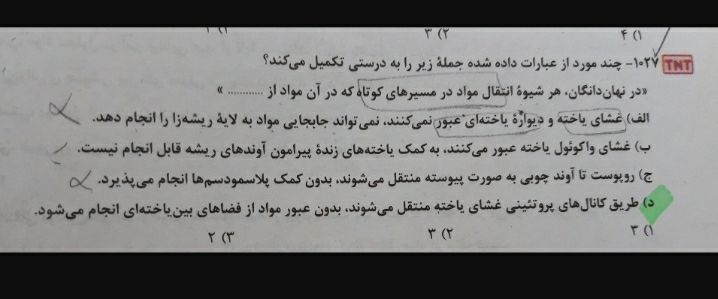 ۱) ۴ ۲) ۳
TNT ۱۰۲۷- چند مورد از عبارات داده شده جملهٔ زیر را به درستی تکمیل می‌کند؟
«در نهان‌دانگان، هر شیوهٔ انتقال مواد در مسیرهای کوتاه که در آن مواد از ............ »
الف) غشای یاخته و دیوارهٔ یاخته‌ای عبور نمی‌کنند، نمی‌تواند جابجایی مواد به لایهٔ ریشه‌زا را انجام دهد.
ب) غشای واکوئول یاخته عبور می‌کنند، به کمک یاخته‌های زندهٔ پیرامون آوندهای ریشه قابل انجام نیست.
ج) روپوست تا آوند چوبی به صورت پیوسته منتقل می‌شوند، بدون کمک پلاسمودسم‌ها انجام می‌پذیرد.
د) طریق کانال‌های پروتئینی غشای یاخته منتقل می‌شوند، بدون عبور مواد از فضاهای بین‌یاخته‌ای انجام می‌شود.
۱) ۳ ۲) ۳ ۳) ۲